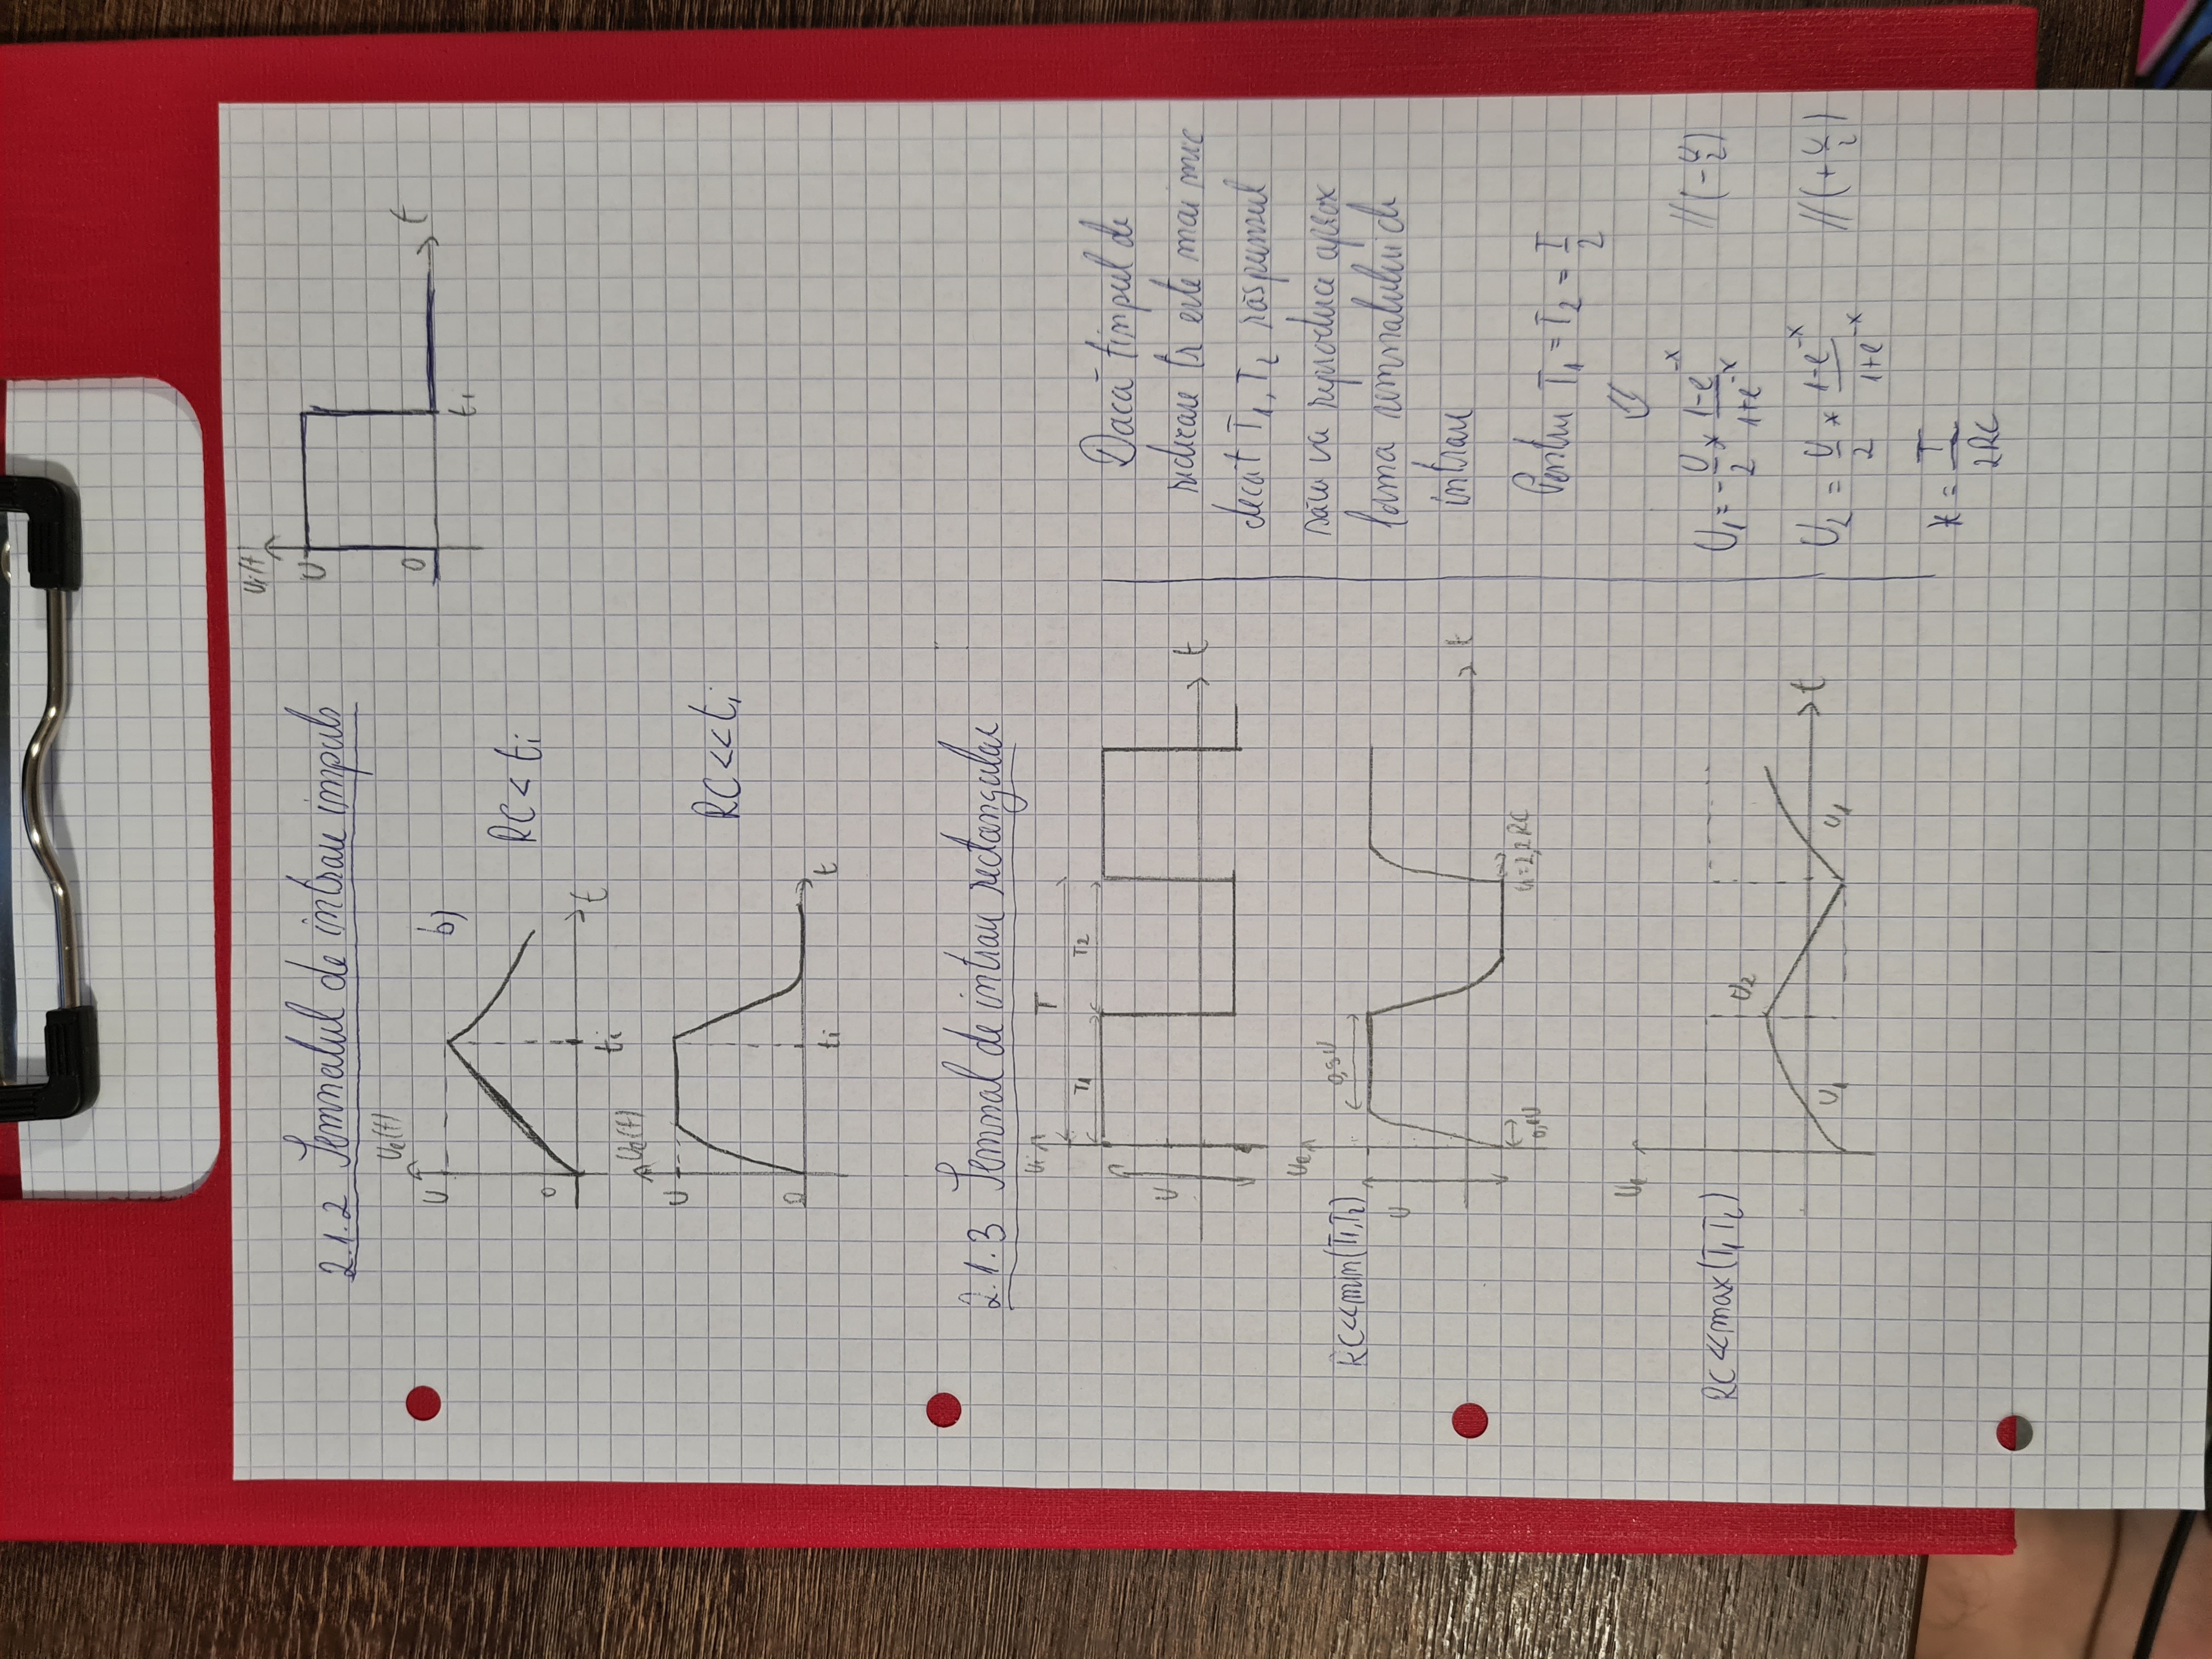 2.1.2 Semnalul de intrare impuls
Ui(t)
U
0
t
ti
Ue(t)
U
b)
0
RC < ti
t
ti
Ue(t)
U
RC << ti
0
ti
t
2.1.3 Semnal de intrare rectangular
Ui
T
T1 T2
U
t
Ue
RC<<min(T1,T2)
0,9U
U
t
0,1U
tr=2,2RC
Ue
RC<<max(T1 T2)
U2
t
U1
U1
Dacă timpul de
ridicare tr este mai mic
decât T1, T2 răspunsul
său va reproduce aprox
forma semnalului de
intrare
Pentru T1 = T2 = T/2
⇓
U1 = -U/2 * (1-e^-x)/(1+e^-x) //(-U/2)
U2 = U/2 * (1-e^-x)/(1+e^-x) //(+U/2)
x = T/2RC